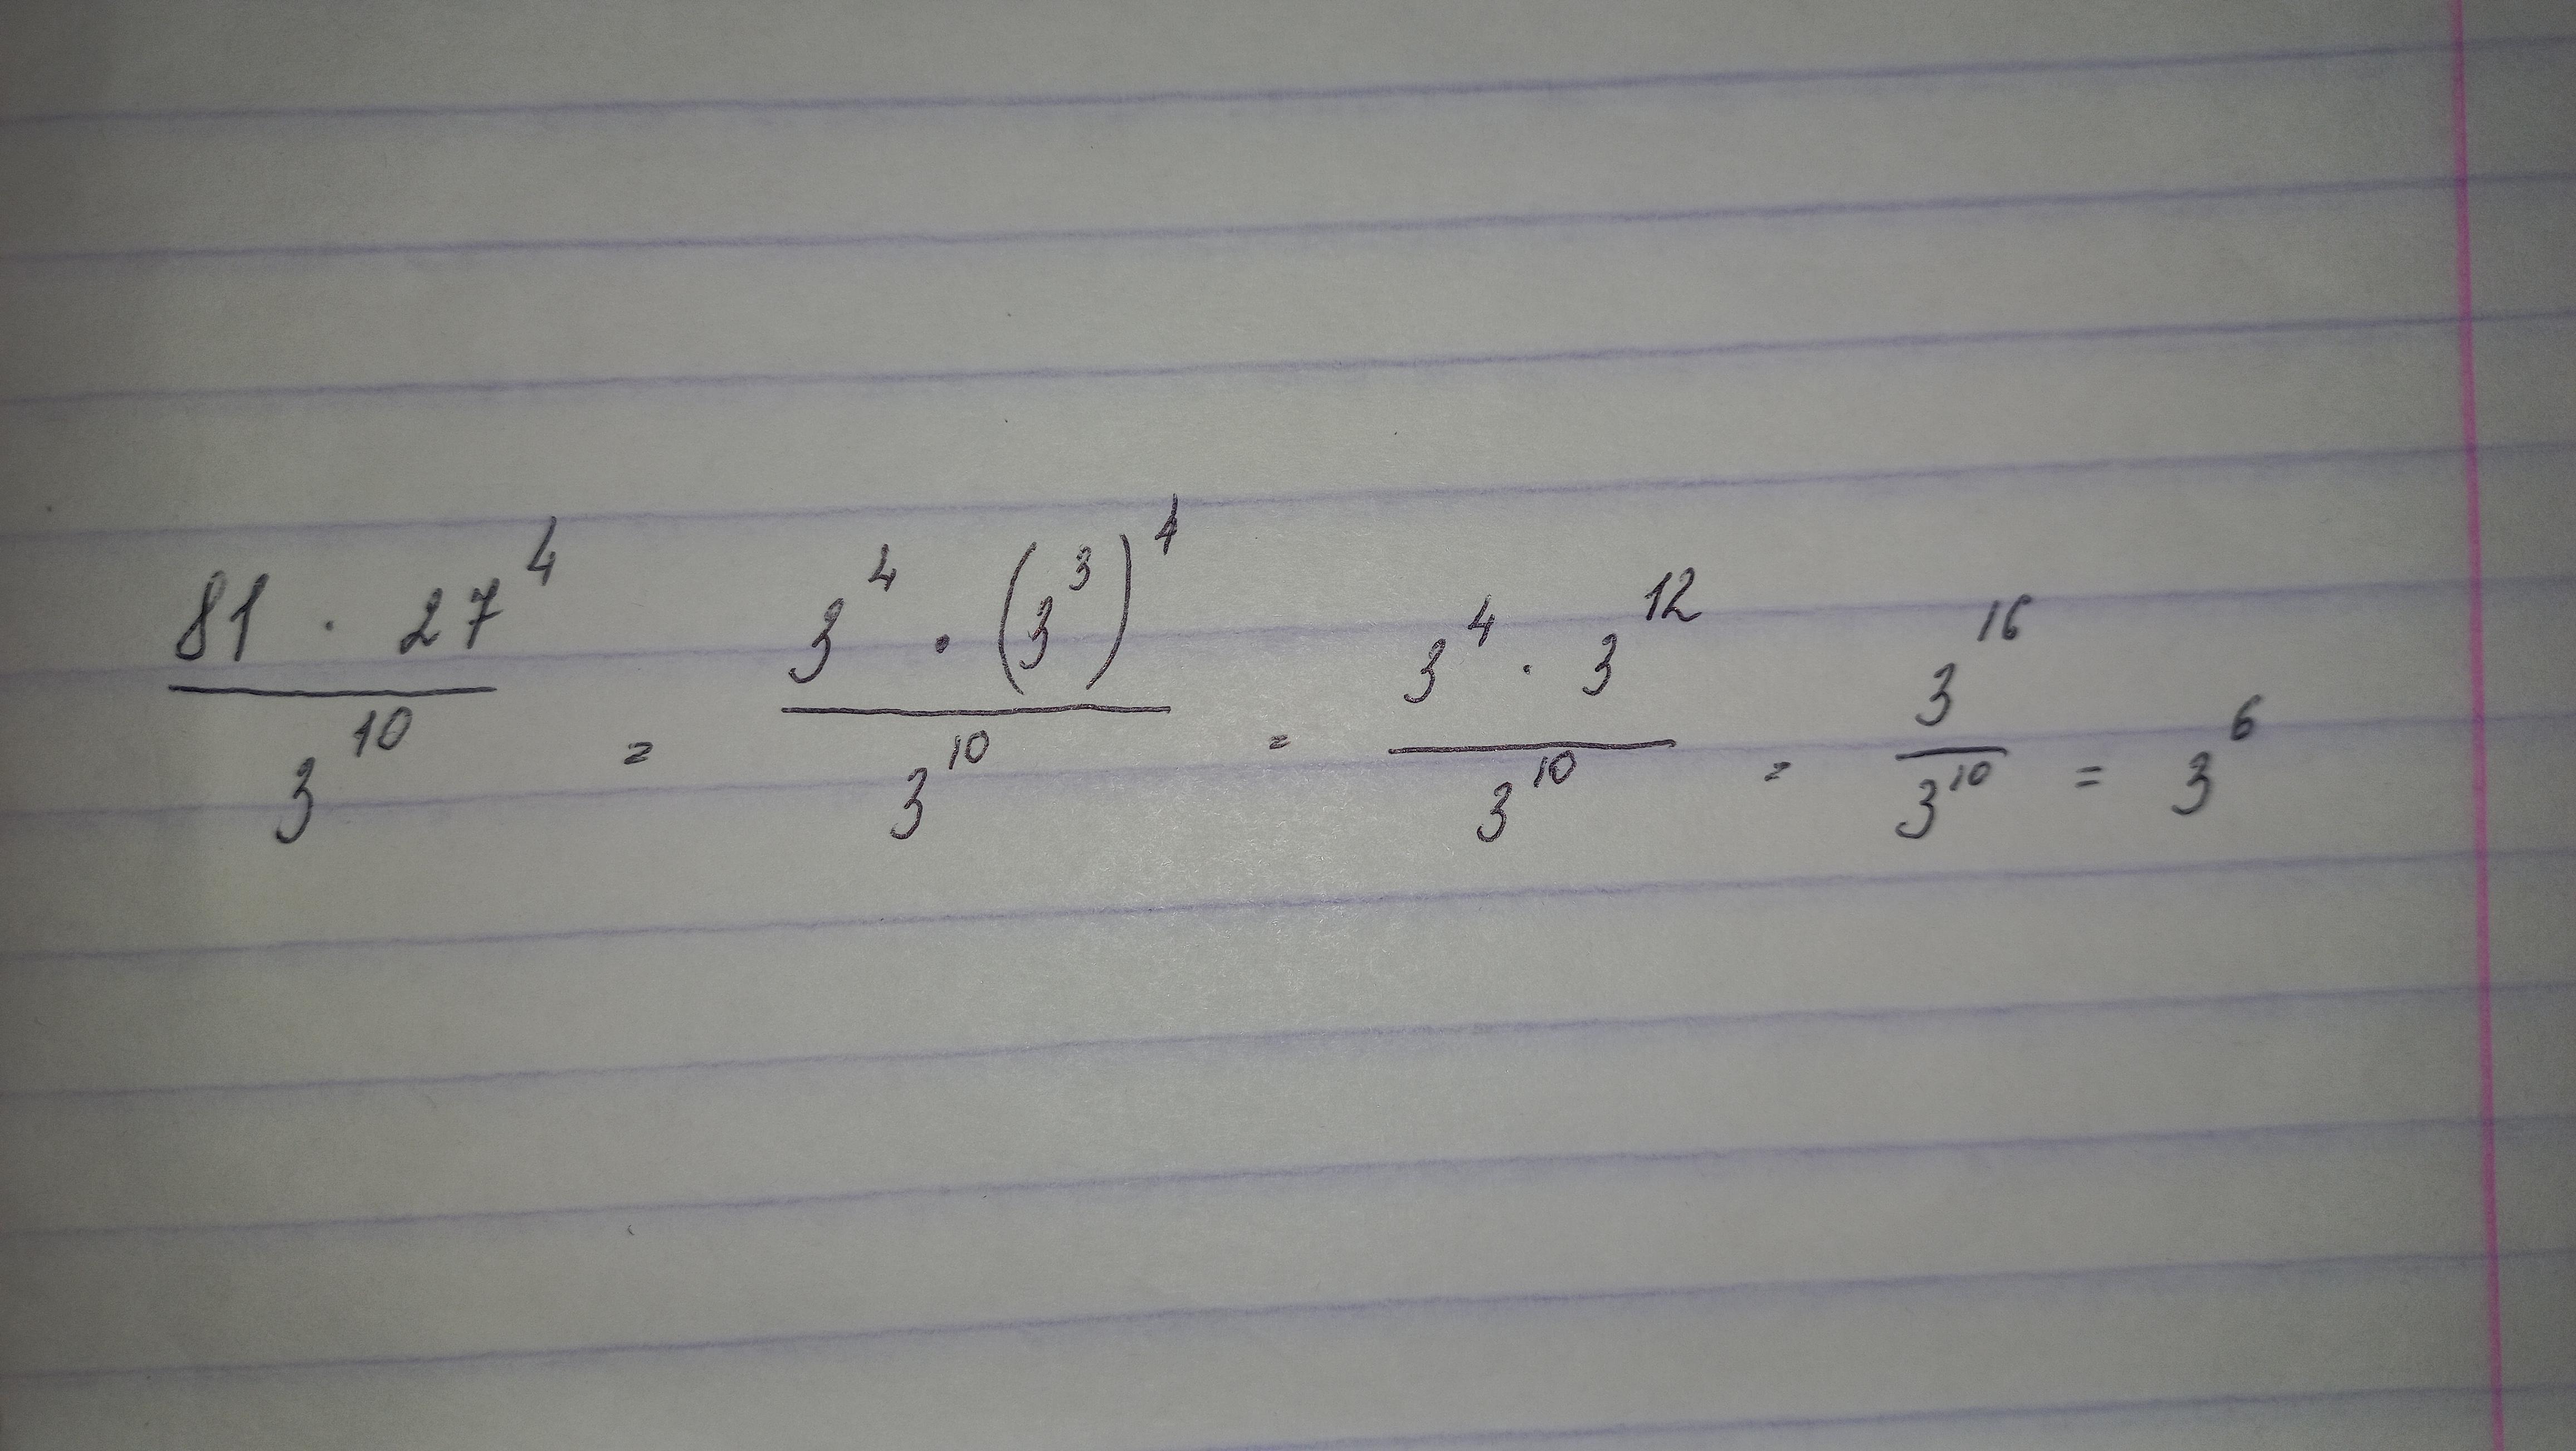 (81 · 27⁴)/3¹⁰ = (3⁴ · (3³)⁴)/3¹⁰ = (3⁴ · 3¹²)/3¹⁰ = 3¹⁶/3¹⁰ = 3⁶